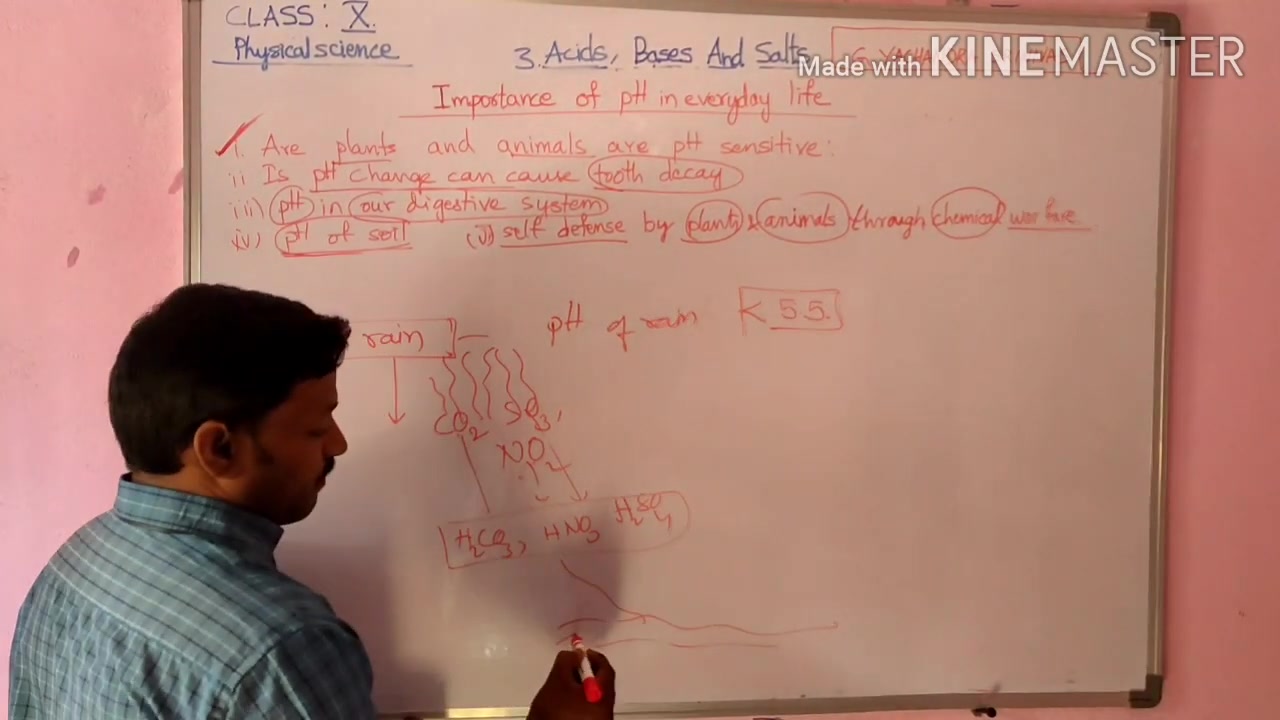 CLASS: X.
Physical science
3. Acids, Bases And Salts
Made with KINEMASTER
Importance of pH in everyday life
i. Are plants and animals are pH sensitive:
ii Is pH change can cause tooth decay
iii) pH in our digestive system
iv) pH of soil (v) self defense by plants & animals through chemical war fare
rain
pH of rain < 5.5.
CO2 SO3,
NO2
H2CO3, HNO3 H2SO4